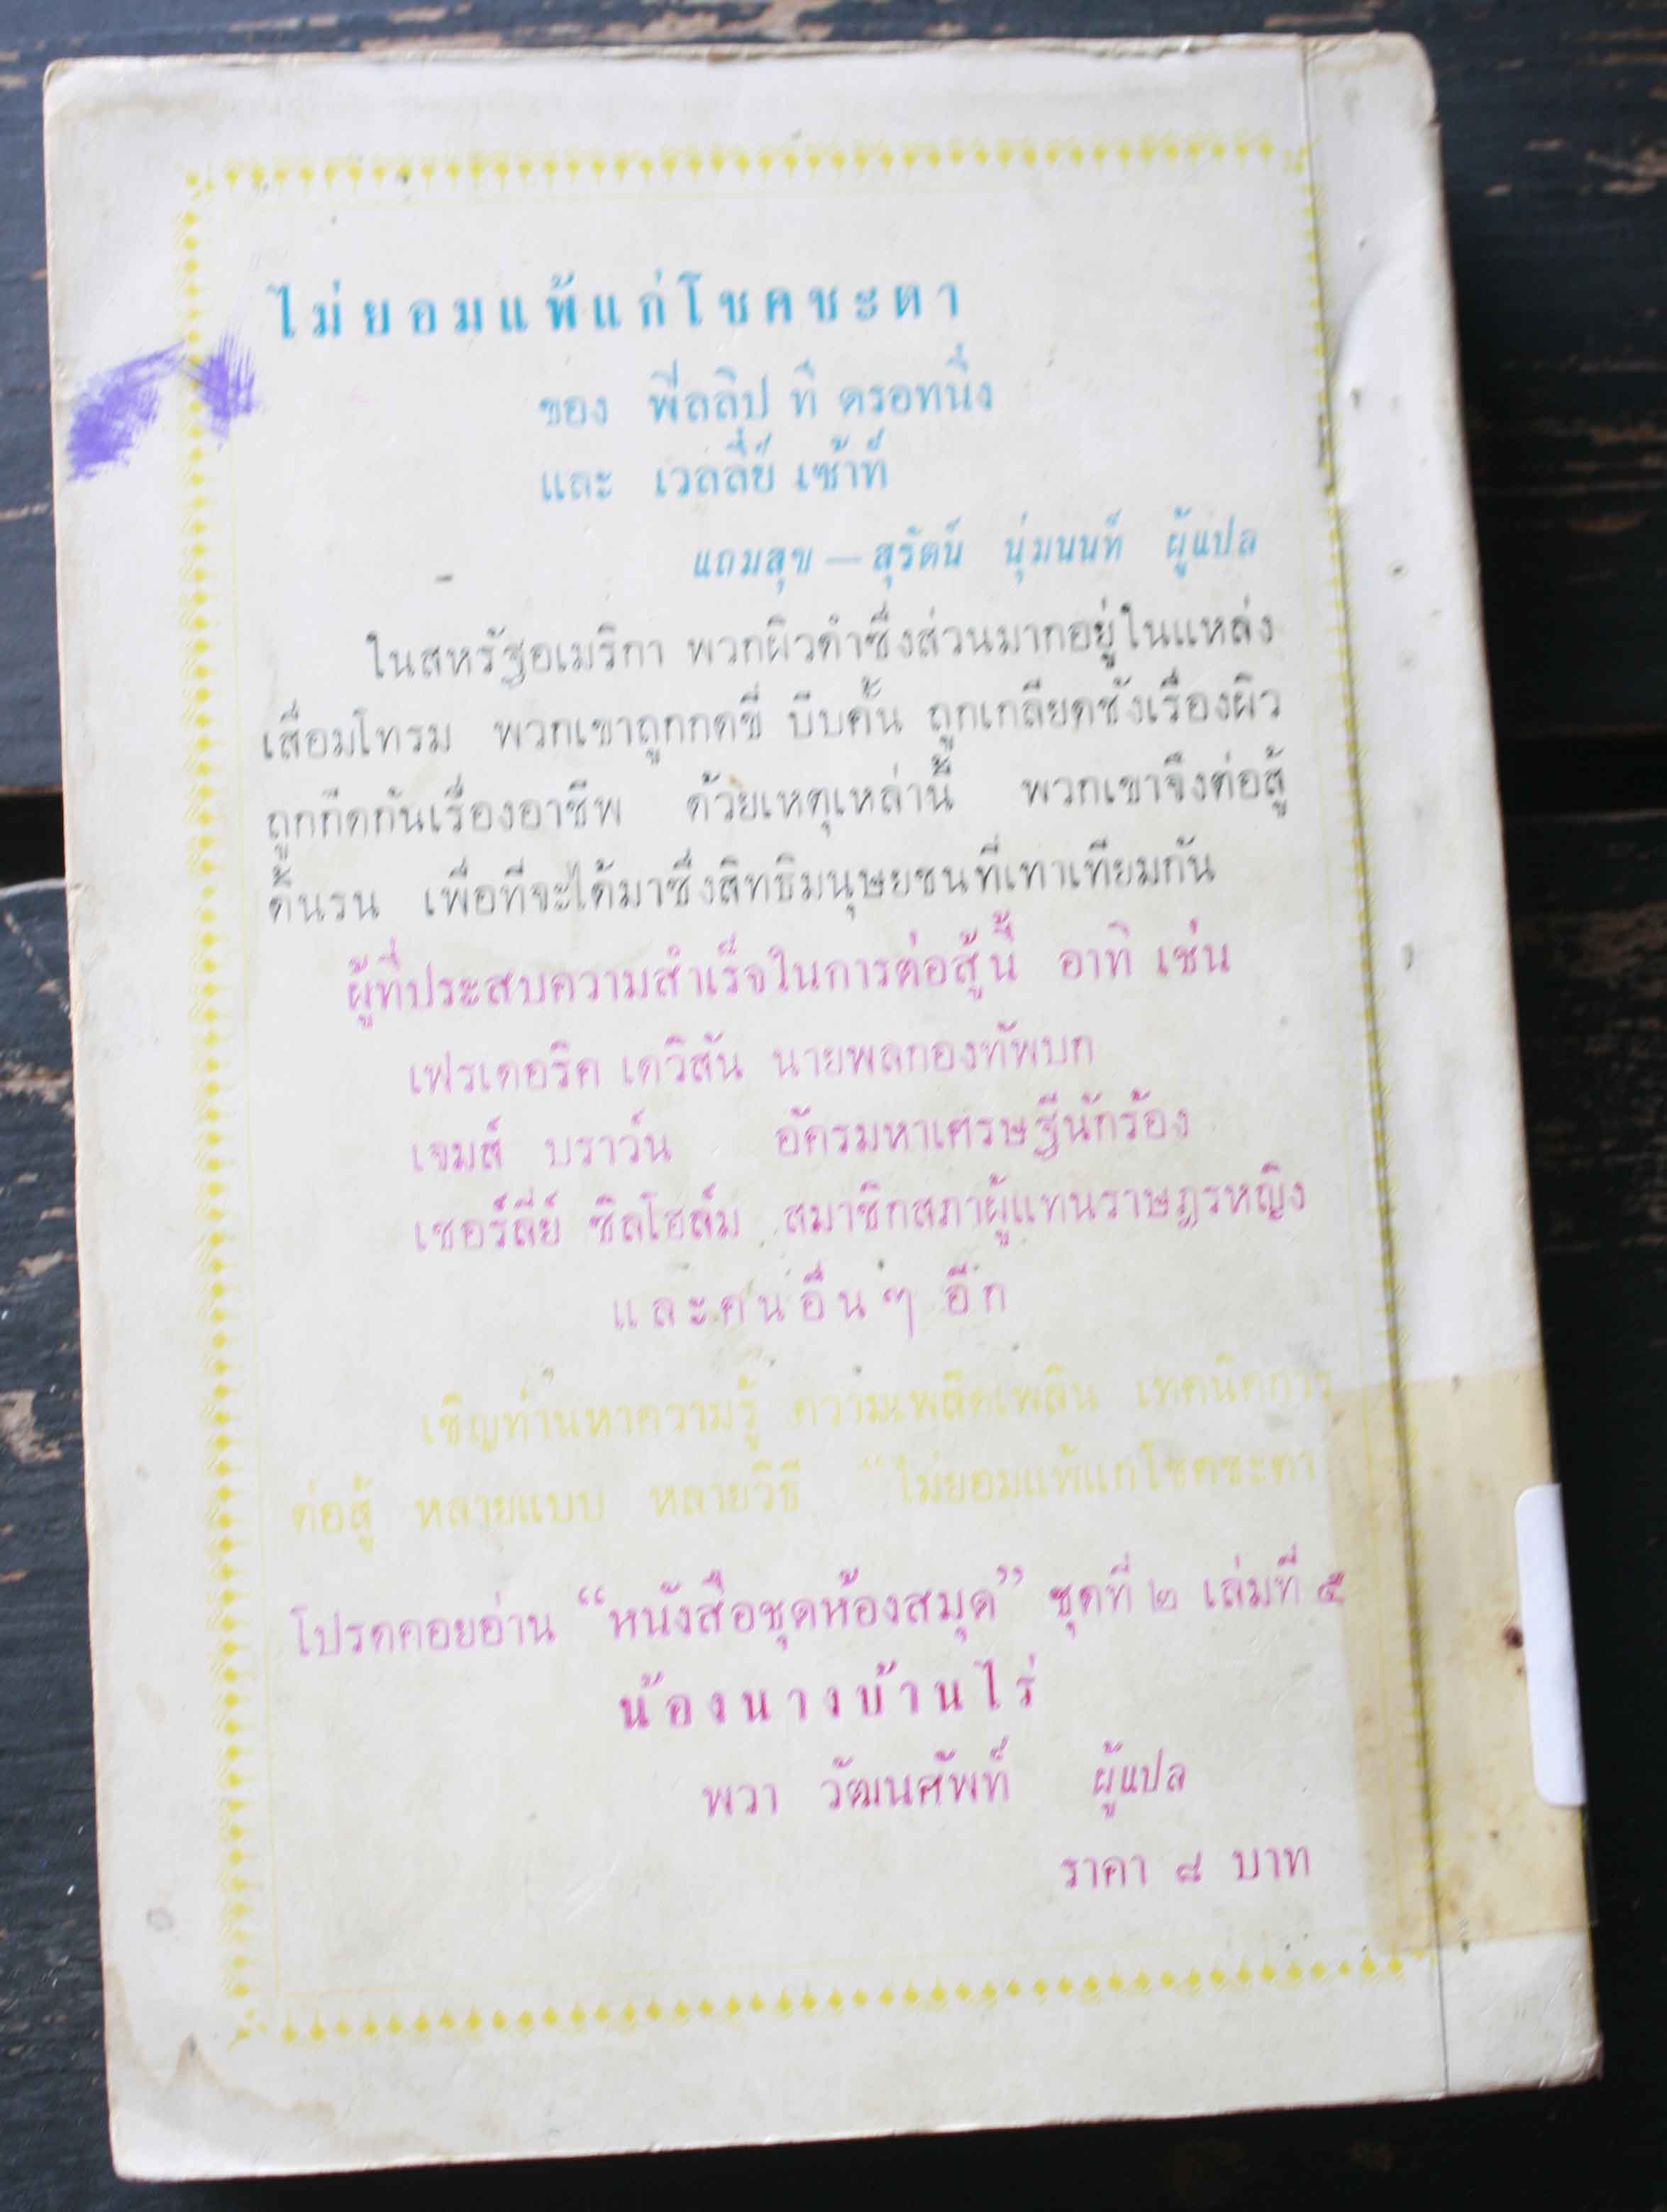 ไม่ยอมแพ้แก่โชคชะตา
ของ ฟิลลิป ที ดรอทนิ่ง
และ เวสลี่ย์ เซ้าท์
แถมสุข — สุรัตน์ นุ่มนนท์ ผู้แปล
ในสหรัฐอเมริกา พวกผิวดำซึ่งส่วนมากอยู่ในแหล่ง
เสื่อมโทรม พวกเขาถูกกดขี่ บีบคั้น ถูกเกลียดชังเรื่องผิว
ถูกกีดกันเรื่องอาชีพ ด้วยเหตุเหล่านี้ พวกเขาจึงต่อสู้
ดิ้นรน เพื่อที่จะได้มาซึ่งสิทธิมนุษยชนที่เทาเทียมกัน
ผู้ที่ประสบความสำเร็จในการต่อสู้นี้ อาทิ เช่น
เฟรเดอริค เดวิสัน นายพลกองทัพบก
เจมส์ บราว์น อัครมหาเศรษฐีนักร้อง
เชอร์ลี่ย์ ชิสโฮล์ม สมาชิกสภาผู้แทนราษฎรหญิง
และคนอื่นๆ อีก
เชิญท่านหาความรู้ ความเพลิดเพลิน เทคนิคการ
ต่อสู้ หลายแบบ หลายวิธี “ไม่ยอมแพ้แก่โชคชะตา
โปรดคอยอ่าน “หนังสือชุดห้องสมุด” ชุดที่ ๒ เล่มที่ ๕
น้องนางบ้านไร่
พวา วัฒนศัพท์ ผู้แปล
ราคา ๘ บาท